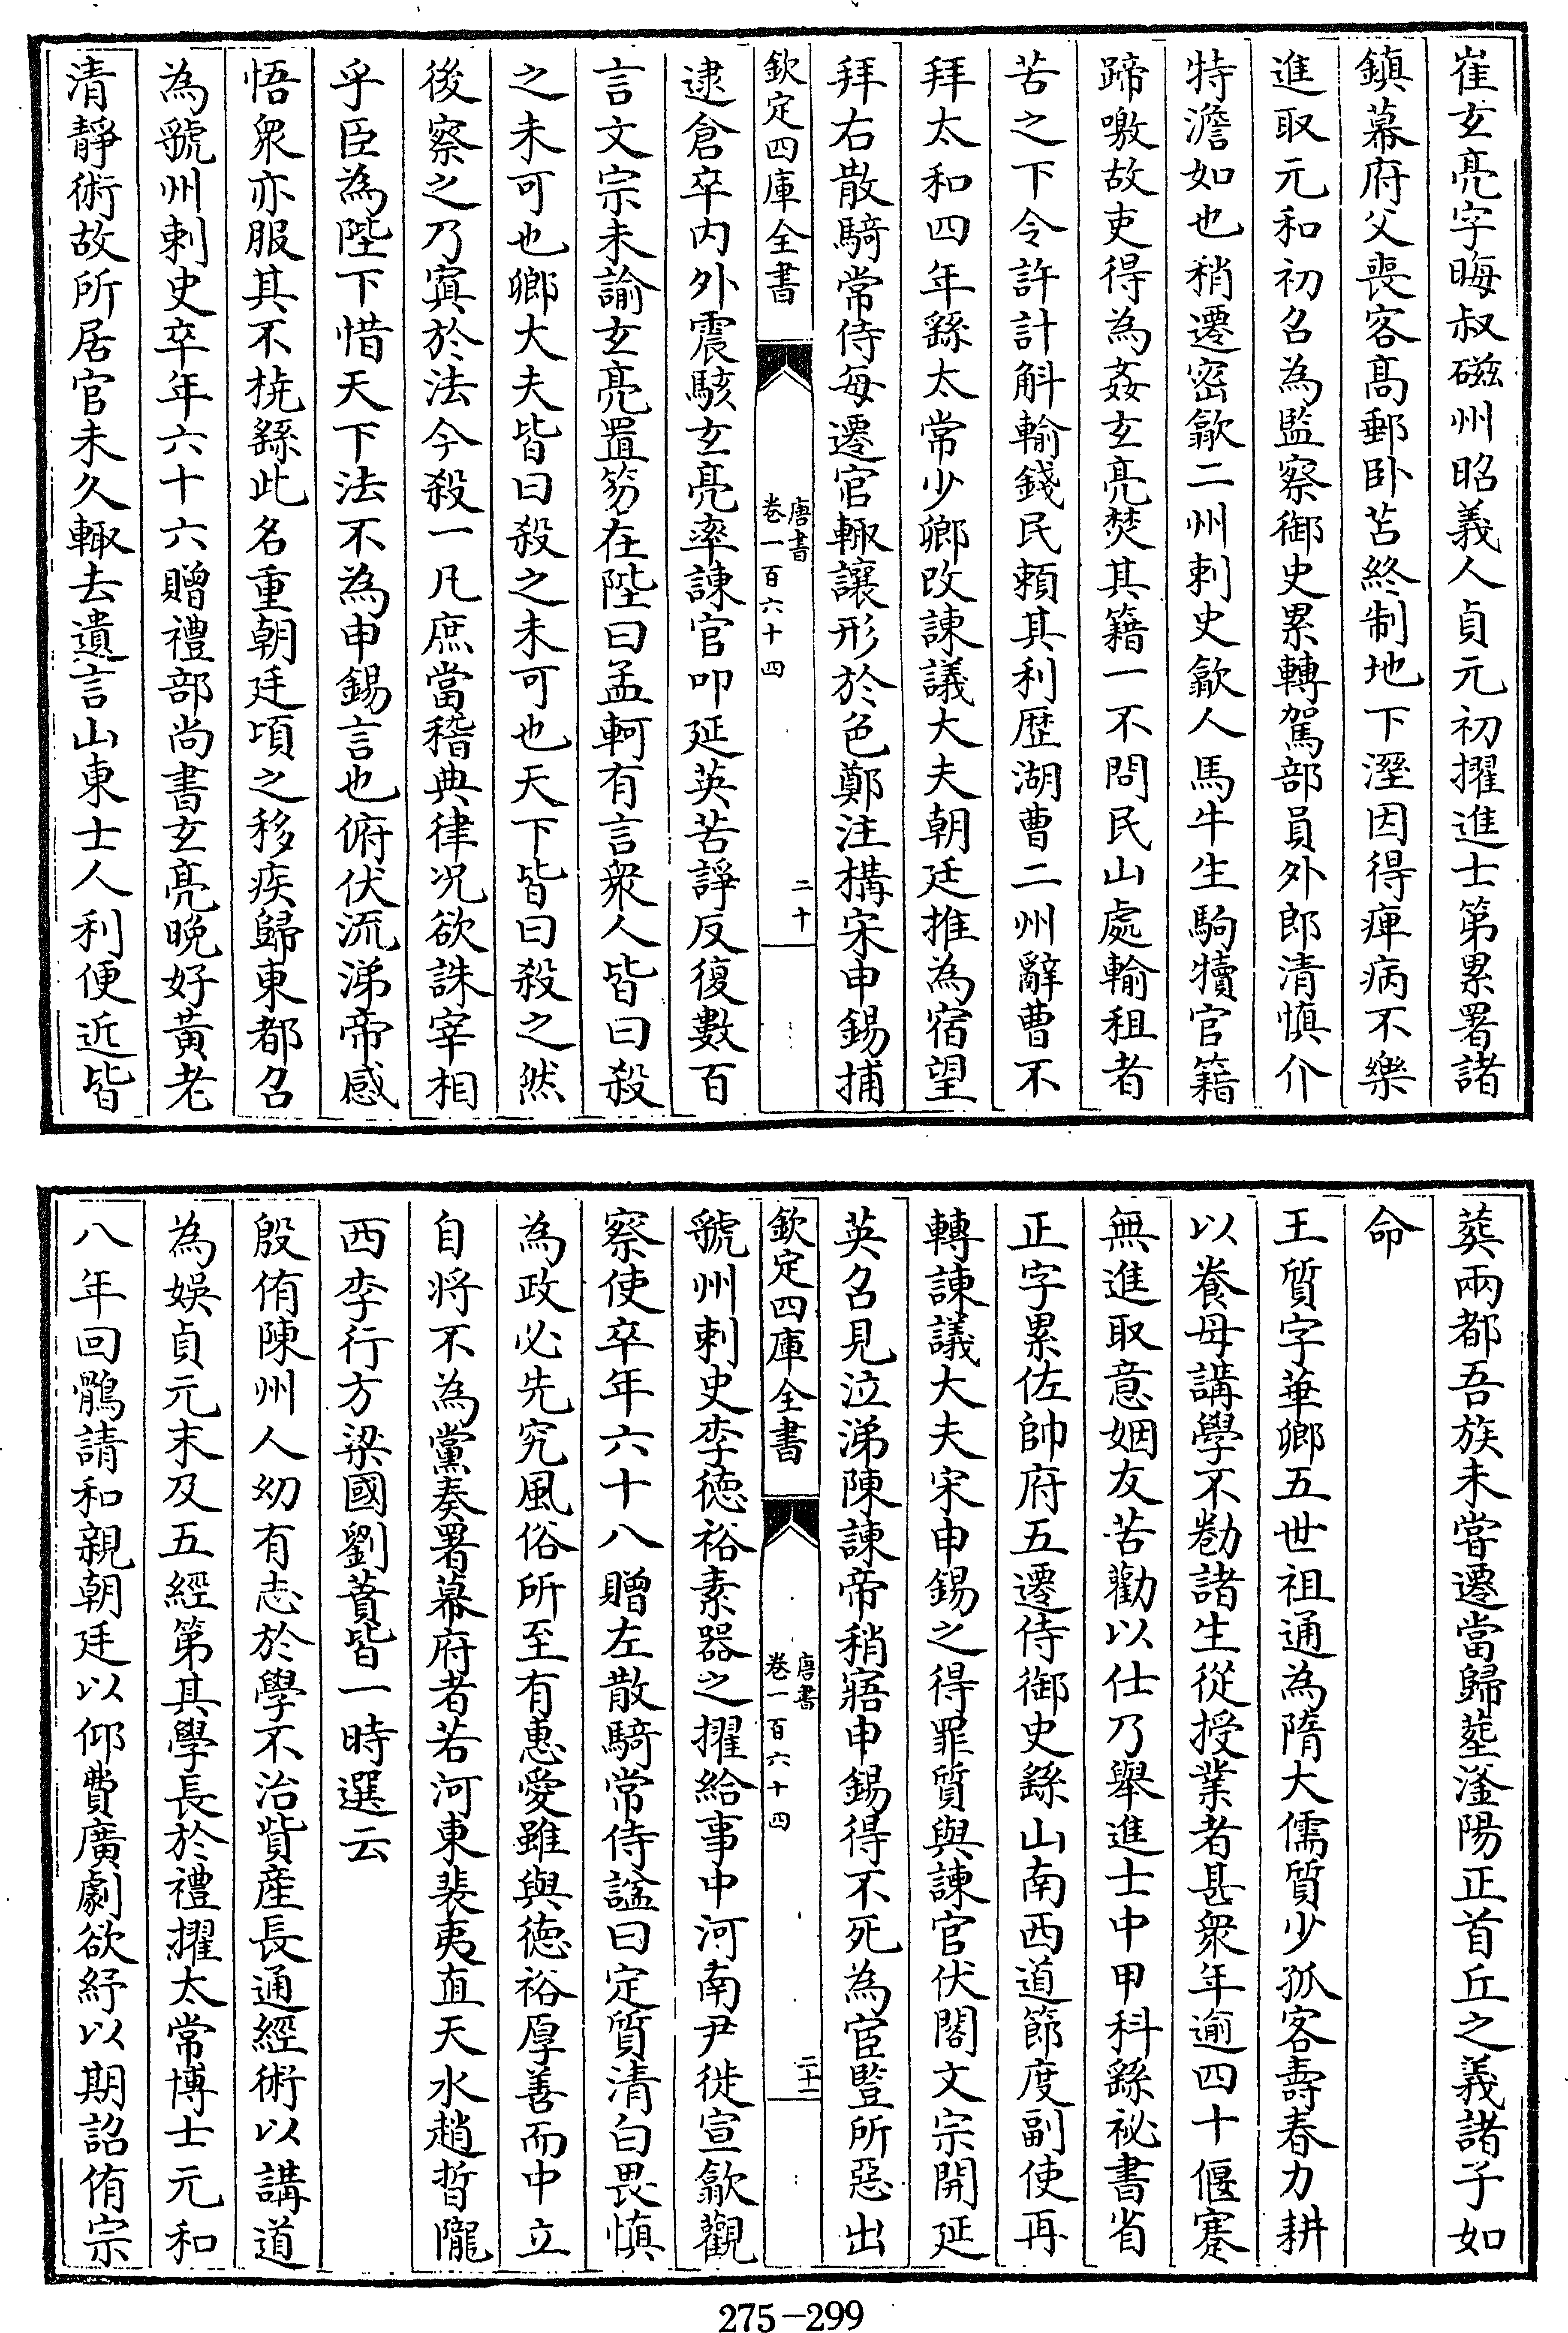 崔玄亮字晦叔磁州昭義人貞元初擢進士第累署諸
鎮幕府父喪客高郵卧苫終制地下溼因得痺病不樂
進取元和初召為監察御史累轉駕部員外郎清慎介
特澹如也稍遷密歙二州刺史歙人馬牛生駒犢官籍
蹄噭故吏得為姦玄亮焚其籍一不問民山處輸租者
苦之下令許計斛輸錢民賴其利歴湖曹二州辭曹不
拜太和四年繇太常少卿改諫議大夫朝廷推為宿望
拜右散騎常侍每遷官輙讓形於色鄭注構宋申錫捕
欽定四庫全書
唐書
卷一百六十四
二十
逮倉卒内外震駭玄亮率諫官叩延英苦諍反復數百
言文宗未諭玄亮置笏在陛曰孟軻有言衆人皆曰殺
之未可也卿大夫皆曰殺之未可也天下皆曰殺之然
後察之乃寘於法今殺一凡庶當稽典律况欲誅宰相
乎臣為陛下惜天下法不為申錫言也俯伏流涕帝感
悟衆亦服其不橈繇此名重朝廷頃之移疾歸東都召
為虢州刺史卒年六十六贈禮部尚書玄亮晚好黃老
清靜術故所居官未久輙去遺言山東士人利便近皆
葬兩都吾族未嘗遷當歸塟滏陽正首丘之義諸子如
命
王質字華卿五世祖通為隋大儒質少孤客壽春力耕
以養母講學不勌諸生從授業者甚衆年逾四十偃蹇
無進取意姻友苦勸以仕乃舉進士中甲科繇祕書省
正字累佐帥府五遷侍御史繇山南西道節度副使再
轉諫議大夫宋申錫之得罪質與諫官伏閤文宗開延
英召見泣涕陳諫帝稍寤申錫得不死為宦豎所惡出
欽定四庫全書
唐書
卷一百六十四
二十一
虢州刺史李德裕素器之擢給事中河南尹徙宣歙觀
察使卒年六十八贈左散騎常侍諡曰定質清白畏慎
為政必先究風俗所至有惠愛雖與德裕厚善而中立
自将不為黨奏署幕府者若河東裴夷直天水趙晳隴
西李行方梁國劉蕡皆一時選云
殷侑陳州人幼有志於學不治貲産長通經術以講道
為娛貞元末及五經第其學長於禮擢太常博士元和
八年回鶻請和親朝廷以仰費廣劇欲紓以期詔侑宗
275-299